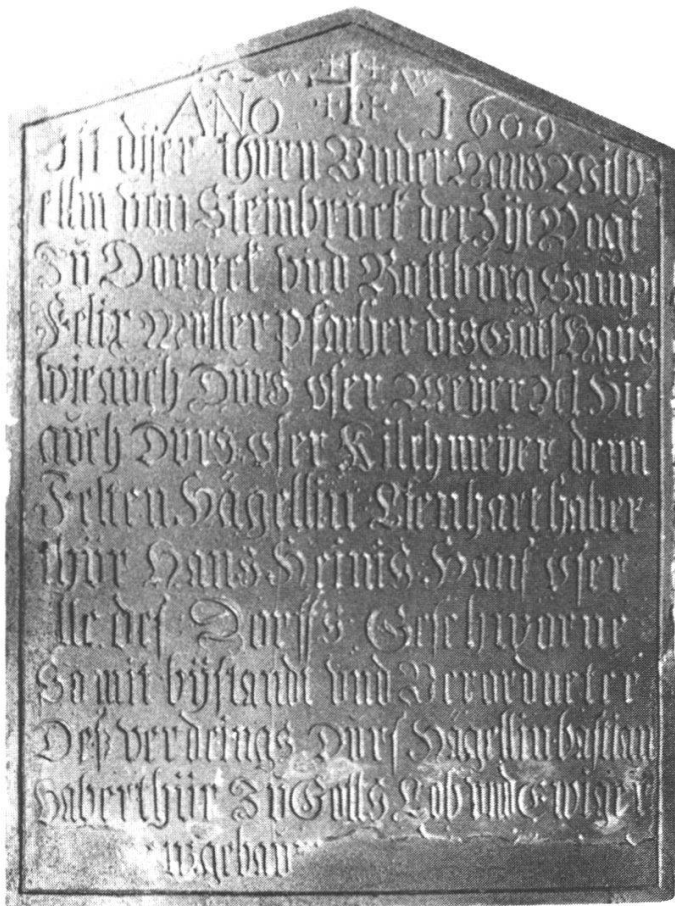 ANO 1609
Ist diser thurn Vnder Hans Wilh-
ellm von Steinbrůck der Zÿt Vogt
Zů Dorneck vnd Rottbůrg Sampt
Felix Müller Pfarher dis Gots Haůs
wie aůch Důrs vser Meÿer Hie
aůch Důrs vser Kilchmeÿer denn
Felten Hägellin Lienhart haber
thür Hans Heinis Hans vser
des Dorffs Geschworne
Sa mit bÿstandt vnd Verordneter
Deß verdeings Durs Hägellin bastian
Haberthür Zů Gotts Lob vnnd Ewiger
gebau